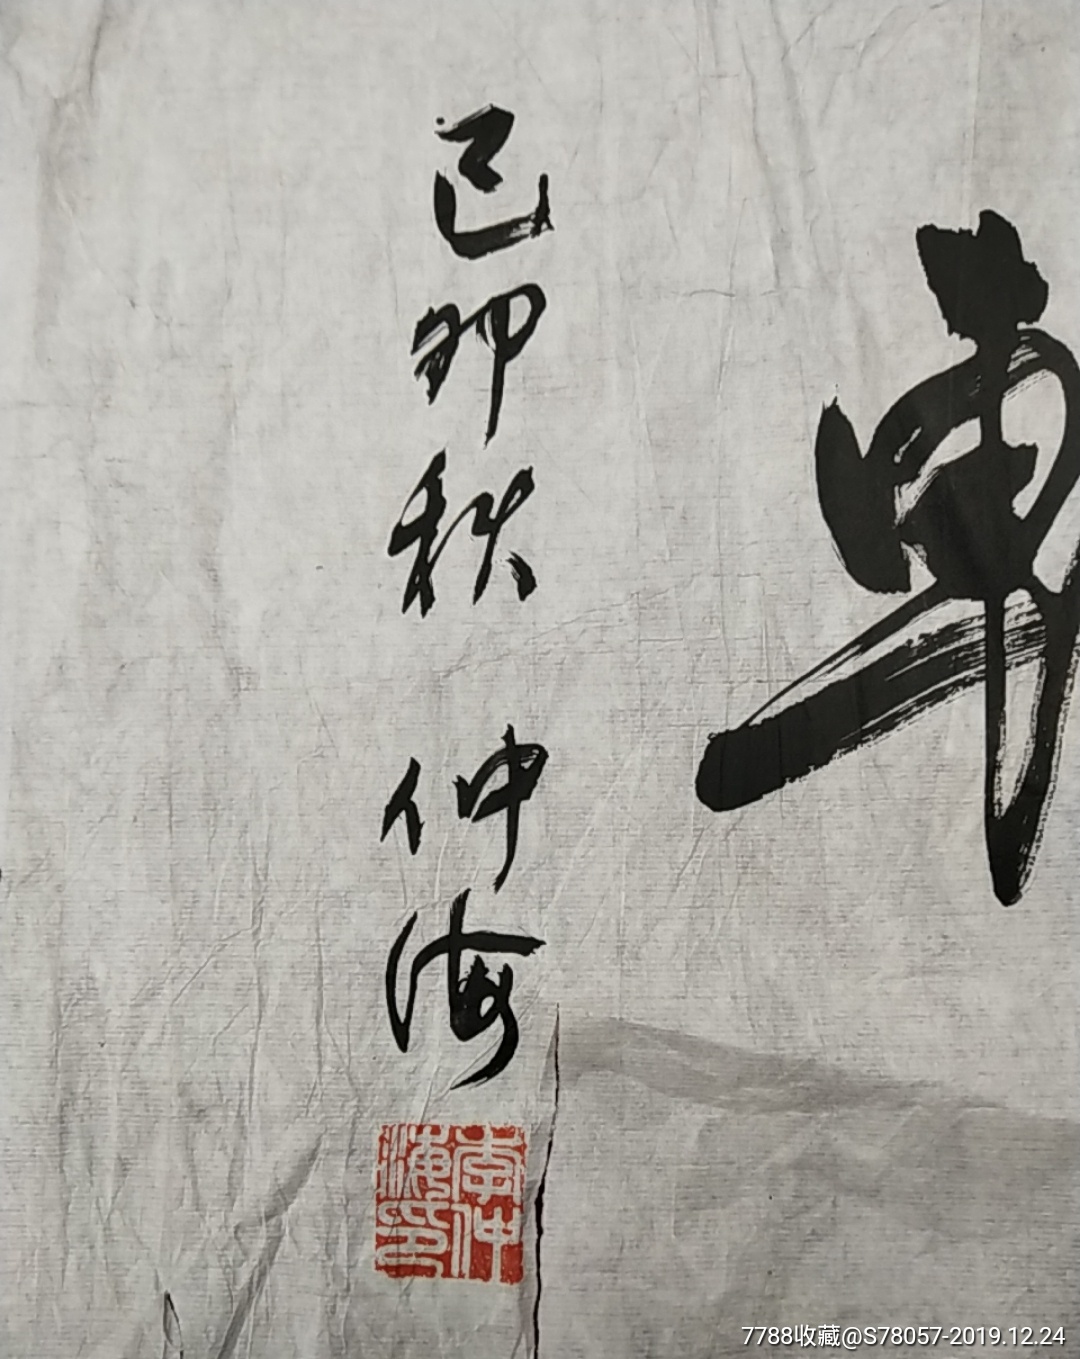 己卯秋 仲海
李仲海印
7788收藏@S78057-2019.12.24